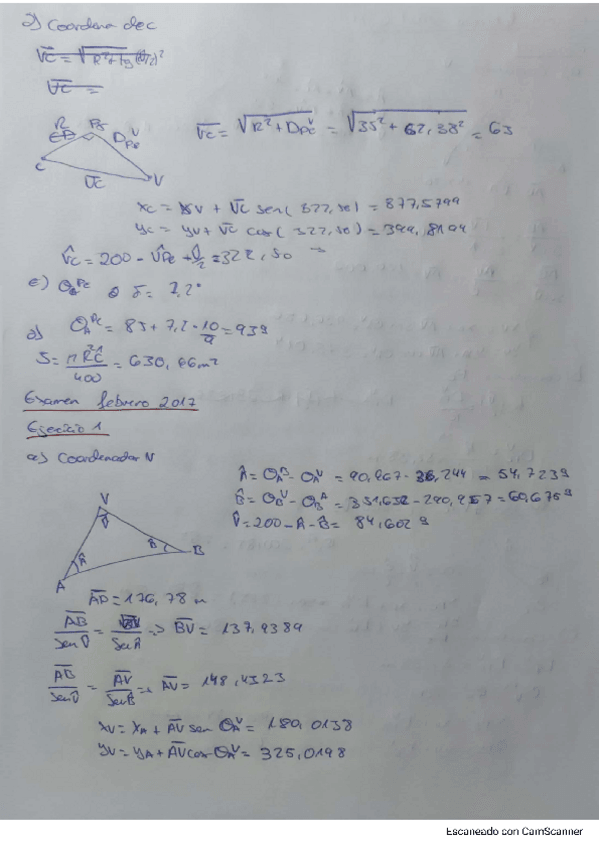 d) Coordena de c
VC = √R²+tg(
VC =
R
DPcV
C
VC
V
VC = √R² + DPcV = √35² + 62,38² = 63
xc = xv + VC sen(322,50) = 877,5799
yc = yv + VC cos(322,50) = 344,8194
c) θ δ = 7,2°
d) = 85 + 7,2 · 10/9 = 93g
S = = 630,46 m²
400
Examen febrero 2017
Ejercicio 1
a) Coordenadas V
Â = θAB - θAV = 90,967 - 36,244 = 54,723g
B̂ = θBV - θBA = 351,632 - 290,957 = 60,675g
V̂ = 200 - A - B̂ = 84,602g
V
V̂
B̂
B
Â
A
AB = 176,78 m
AB/sen V̂ = BV/sen A => BV = 137,9389
AB/sen V̂ = AV/sen B => AV = 148,4323
xv = xA + AV sen θAV = 180,0138
yv = yA + AV cos θAV = 325,0198
Escaneado con CamScanner